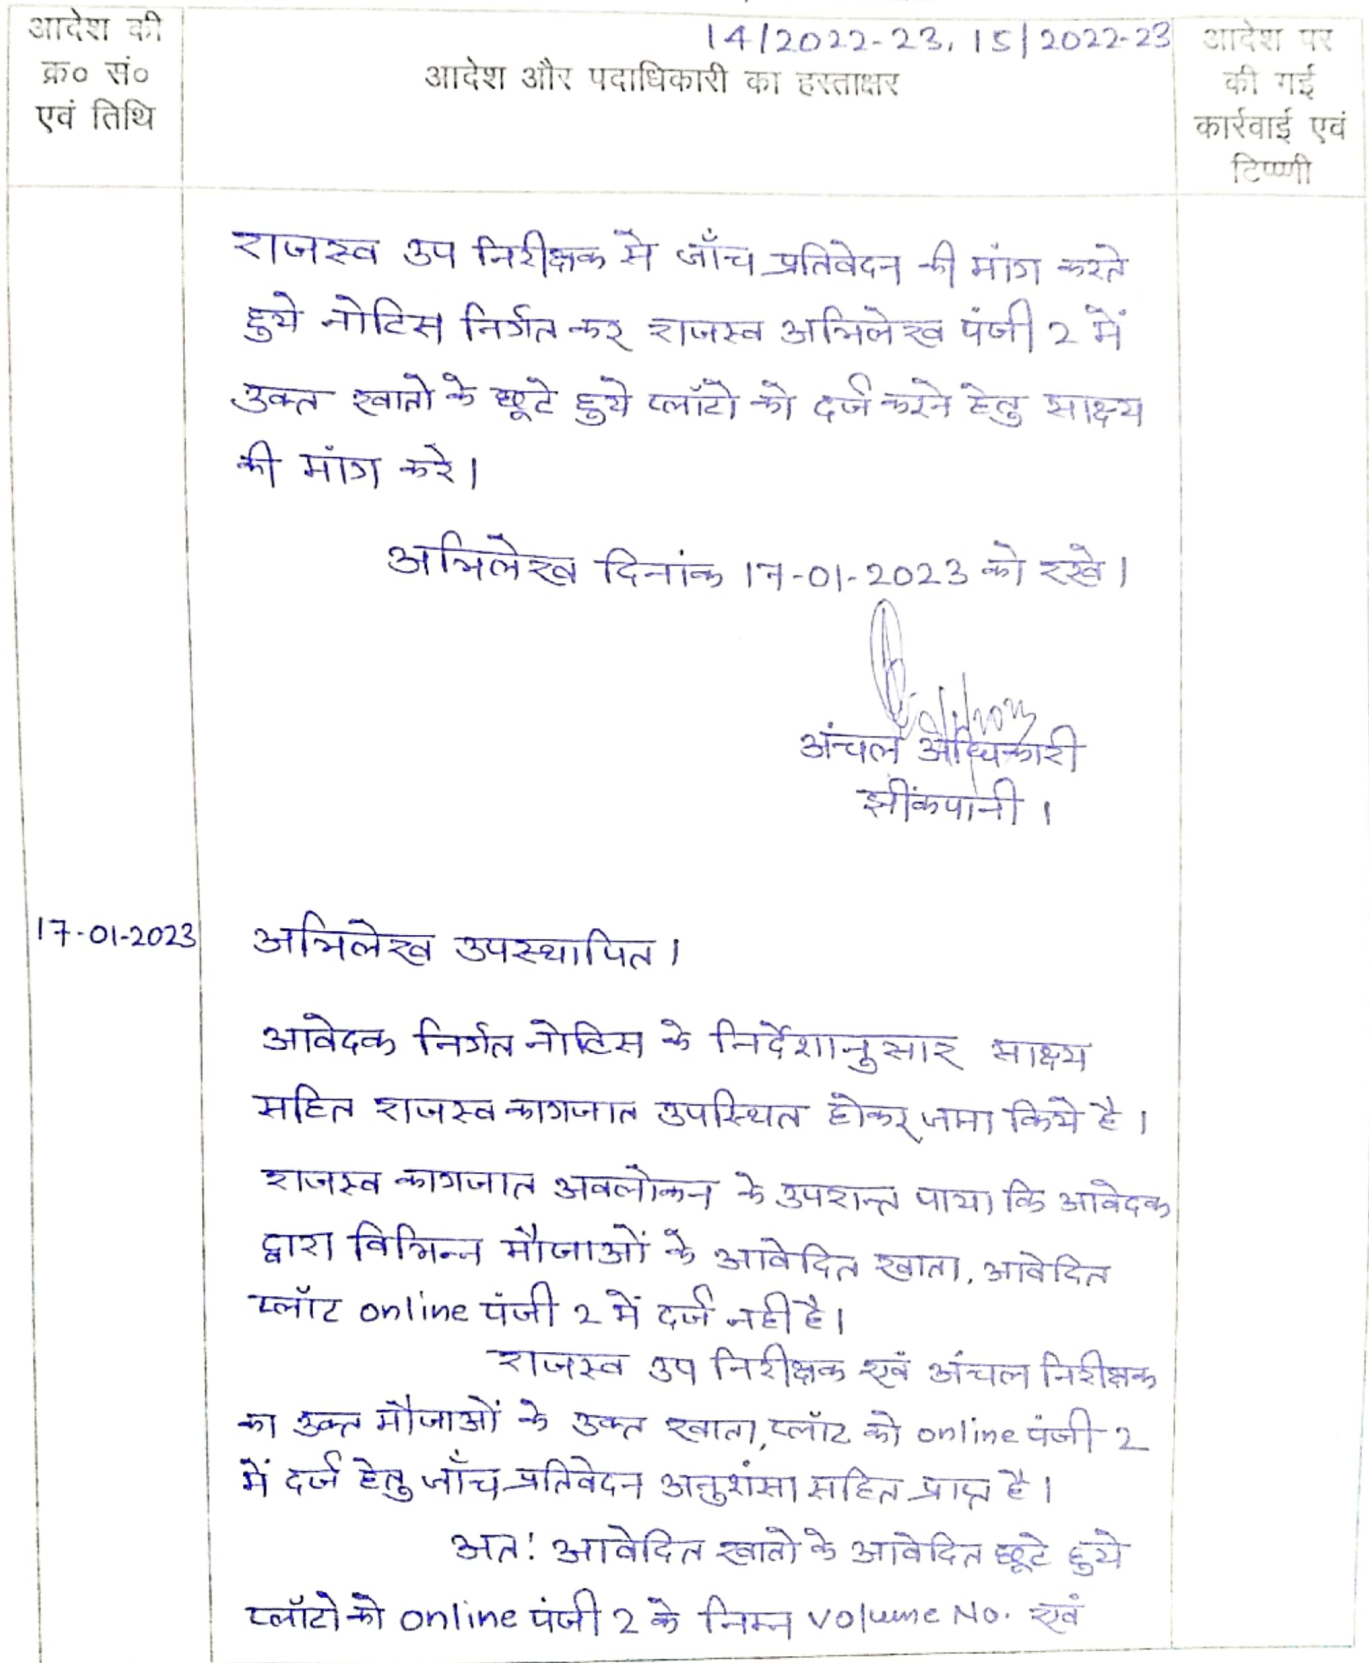 14/2022-23, 15/2022-23
आदेश की
क्र० सं०
एवं तिथि
आदेश और पदाधिकारी का हस्ताक्षर
आदेश पर
की गई
कार्रवाई एवं
टिप्पणी
राजस्व उप निरीक्षक से जाँच प्रतिवेदन की मांग करते
हुये नोटिस निर्गत कर राजस्व अभिलेख पंजी 2 में
उक्त खातो के छूटे हुये प्लॉटो को दर्ज करने हेतु साक्ष्य
की मांग करे।
अभिलेख दिनांक 17-01-2023 को रखे।
अंचल अधिकारी
झींकपानी ।
17-01-2023
अभिलेख उपस्थापित।
आवेदक निर्गत नोटिस के निर्देशानुसार साक्ष्य
सहित राजस्व कागजात उपस्थित होकर जमा किये है।
राजस्व कागजात अवलोकन के उपरान्त पाया कि आवेदक
द्वारा विभिन्न मौजाओं के आवेदित खाता, आवेदित
प्लॉट online पंजी 2 में दर्ज नही है।
राजस्व उप निरीक्षक एवं अंचल निरीक्षक
का उक्त मौजाओं के उक्त खाता, प्लॉट को online पंजी 2
में दर्ज हेतु जाँच प्रतिवेदन अनुशंसा सहित प्राप्त है।
अतः आवेदित खातो के आवेदित छूटे हुये
प्लॉटो को online पंजी 2 के निम्न Volume No. एवं